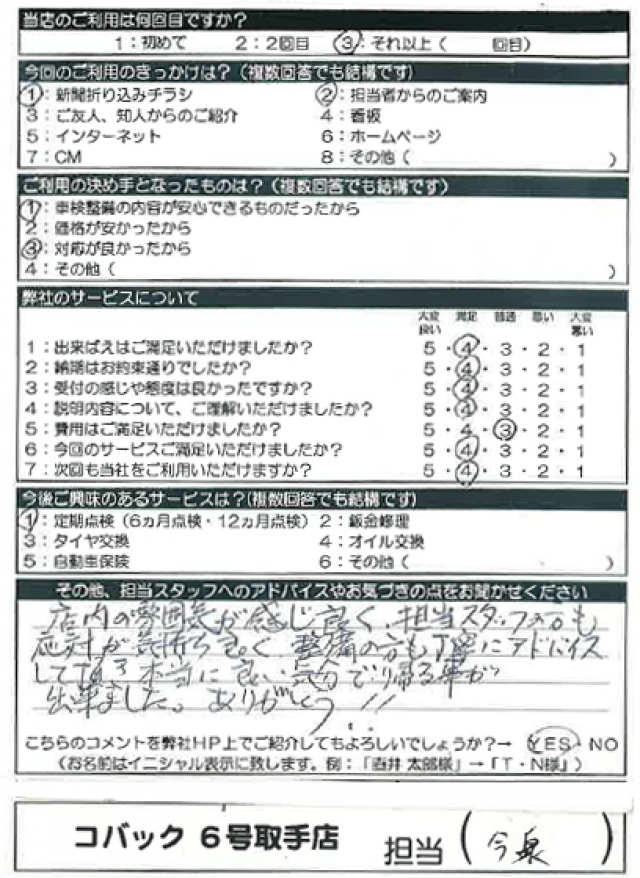 当店のご利用は何回目ですか？
1：初めて 2：2回目 3：それ以上（ 回目）
今回のご利用のきっかけは？（複数回答でも結構です）
1：新聞折り込みチラシ 2：担当者からのご案内
3：ご友人、知人からのご紹介 4：看板
5：インターネット 6：ホームページ
7：CM 8：その他（ ）
ご利用の決め手となったものは？（複数回答でも結構です）
1：車検整備の内容が安心できるものだったから
2：価格が安かったから
3：対応が良かったから
4：その他（ ）
弊社のサービスについて
大変良い 満足 普通 悪い 大変悪い
1：出来ばえはご満足いただけましたか？ 5・4・3・2・1
2：納期はお約束通りでしたか？ 5・4・3・2・1
3：受付の感じや態度は良かったですか？ 5・4・3・2・1
4：説明内容について、ご理解いただけましたか？ 5・4・3・2・1
5：費用はご満足いただけましたか？ 5・4・3・2・1
6：今回のサービスご満足いただけましたか？ 5・4・3・2・1
7：次回も当社をご利用いただけますか？ 5・4・3・2・1
今後ご興味のあるサービスは？（複数回答でも結構です）
1：定期点検（6ヵ月点検・12ヵ月点検） 2：鈑金修理
3：タイヤ交換 4：オイル交換
5：自動車保険 6：その他（ ）
その他、担当スタッフへのアドバイスやお気づきの点をお聞かせください
店内の雰囲気が感じ良く、担当スタッフの方も
応対が気持ち良く 整備の方も丁寧にアドバイス
して頂き 本当に良い気分で帰る事が
出来ました。ありがとう!!
こちらのコメントを弊社HP上でご紹介してもよろしいでしょうか？→ YES・NO
（お名前はイニシャル表示に致します。例：「直井 太郎様」→「T・N様」）
コバック 6号取手店 担当（今泉）